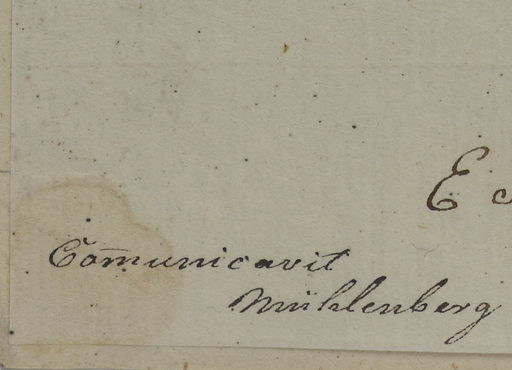 E
Com̄unicavit
Mühlenberg